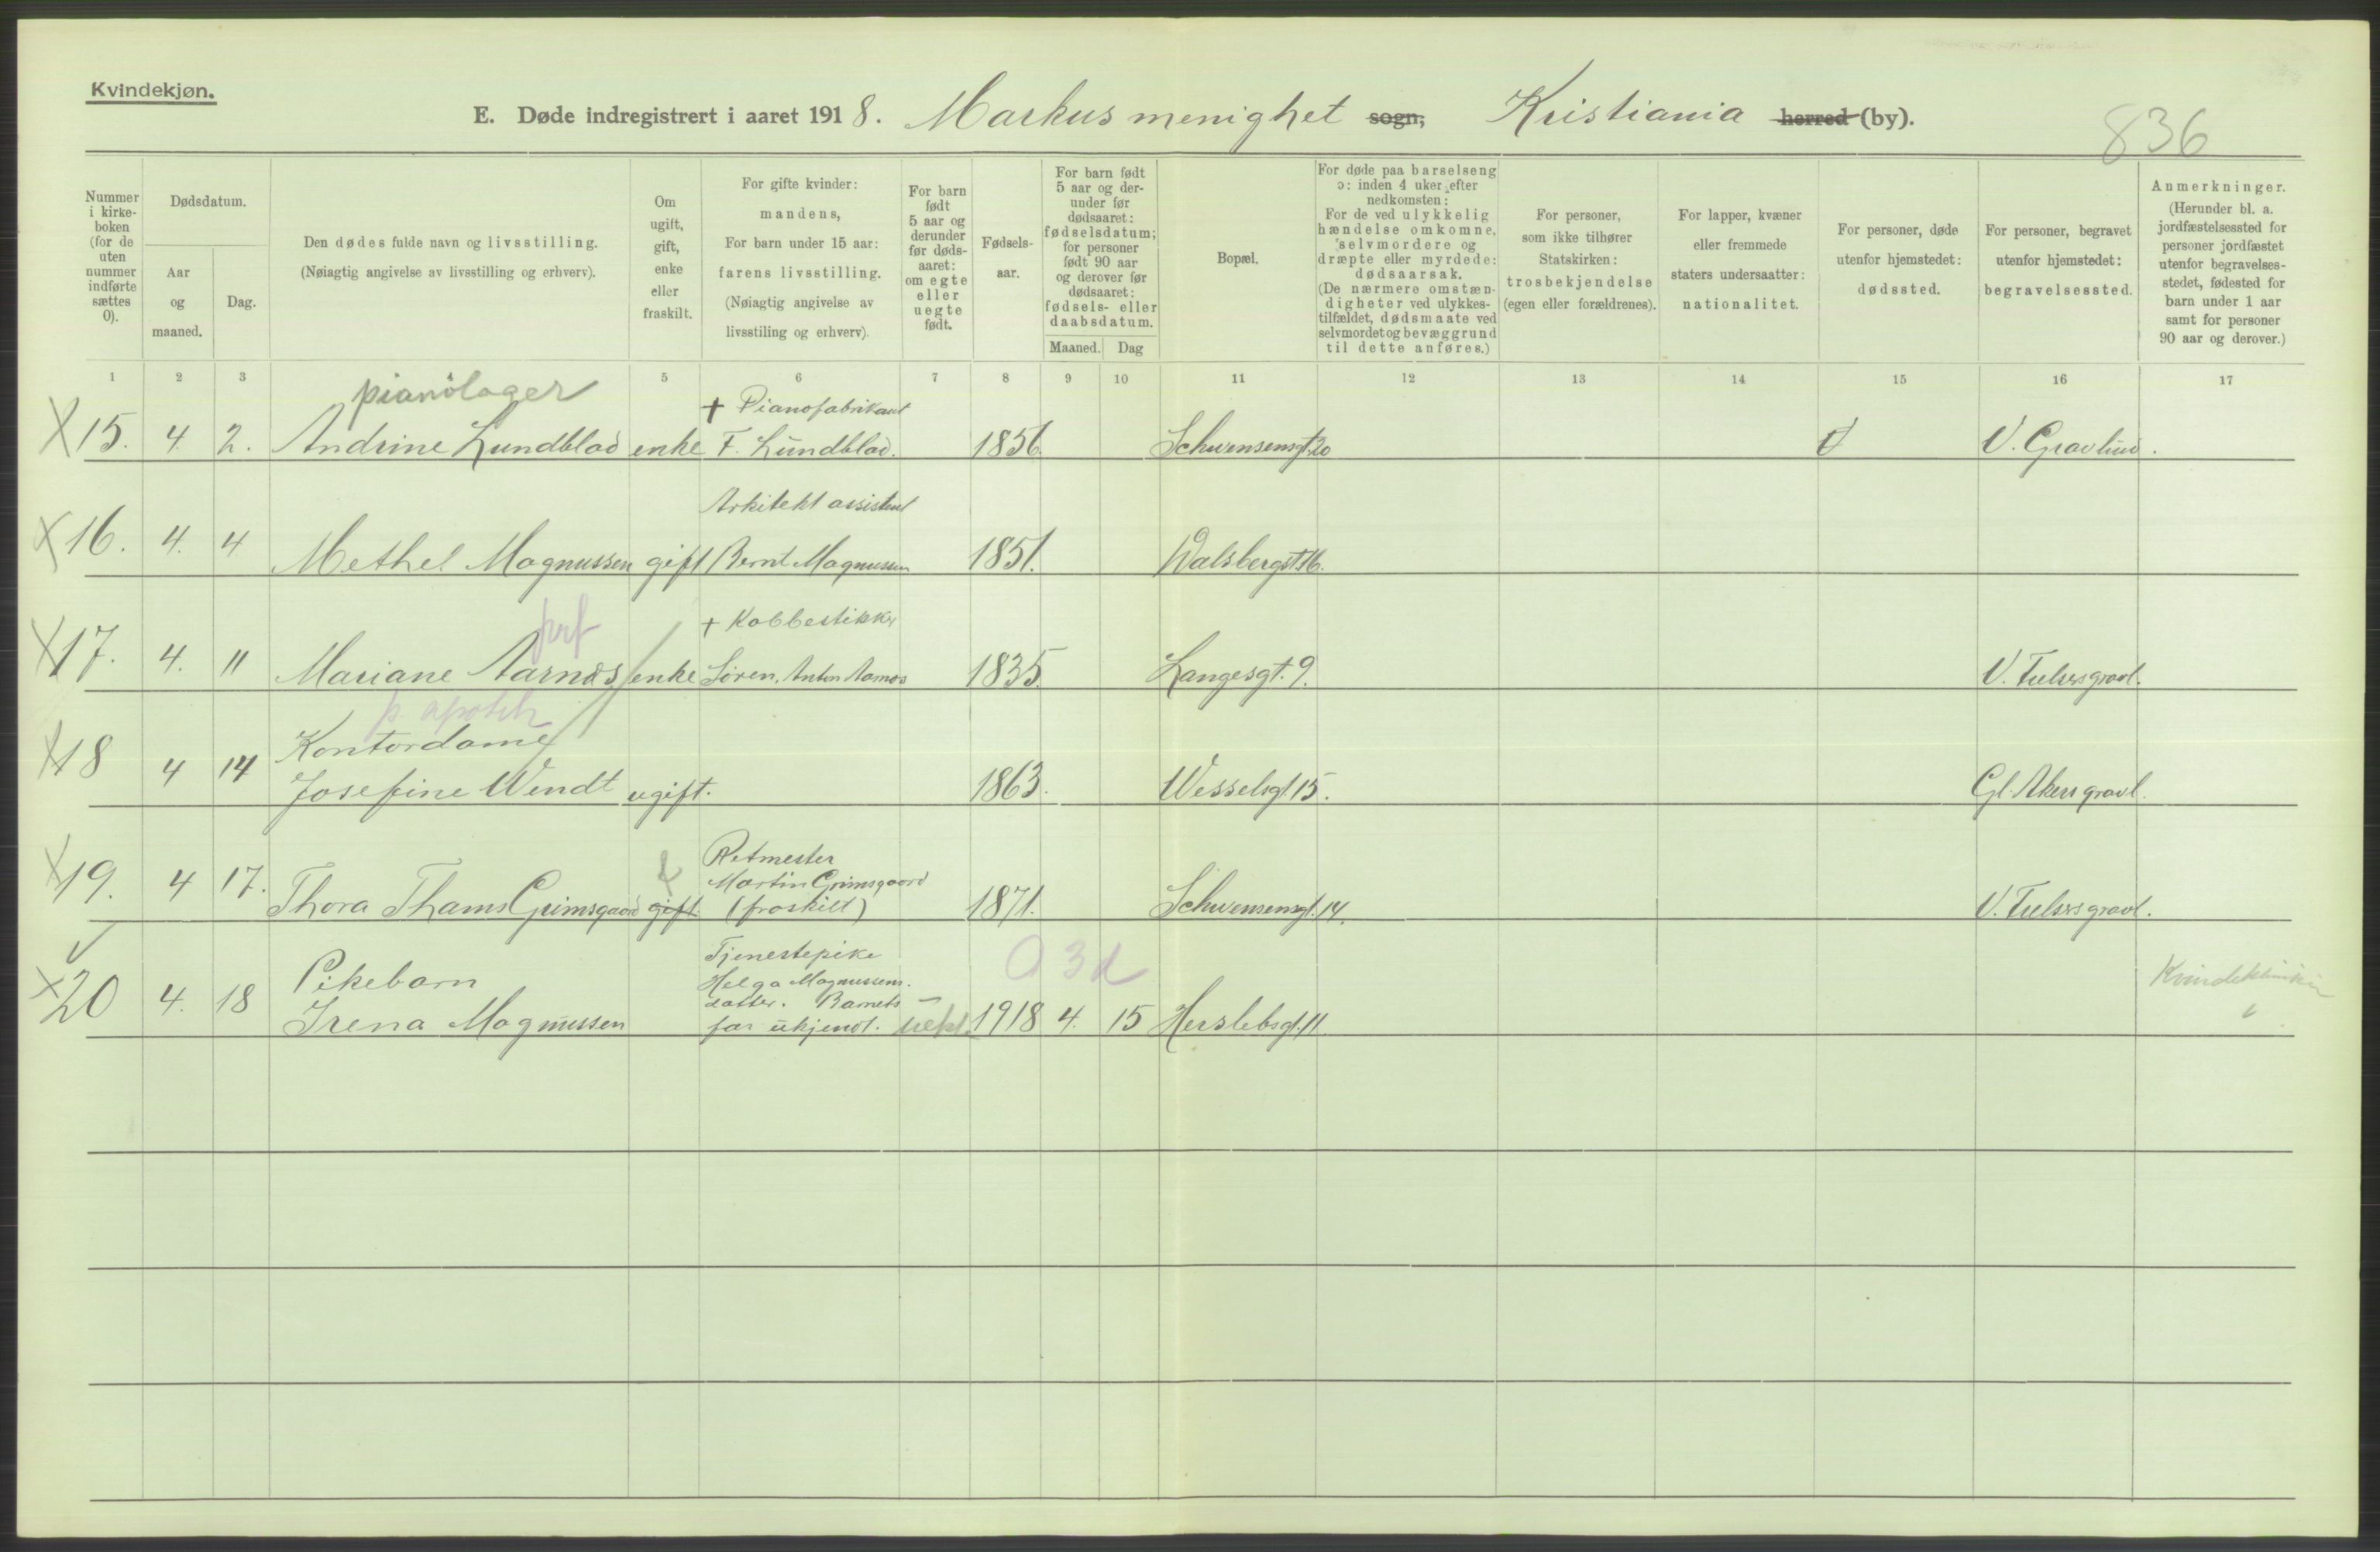 Kvindekjøn.
E. Døde indregistrert i aaret 1918. Markus menighet sogn, Kristiania herred (by).
836
Nummer i kirke-boken (for de uten nummer indførte sættes 0).
Dødsdatum.
Aar og maaned.
Dag.
Den dødes fulde navn og livsstilling.
(Nøiagtig angivelse av livsstilling og erhverv).
Om ugift, gift, enke eller fraskilt.
For gifte kvinder: mandens,
For barn under 15 aar: farens livsstilling.
(Nøiagtig angivelse av livsstiling og erhverv).
For barn født 5 aar og derunder før døds-aaret: om egte eller uegte født.
Fødsels-aar.
For barn født 5 aar og der-under før dødsaaret: fødselsdatum; for personer født 90 aar og derover før dødsaaret: fødsels- eller daabsdatum.
Maaned. Dag
Bopæl.
For døde paa barselseng ɔ: inden 4 uker efter nedkomsten:
For de ved ulykkelig hændelse omkomne, selvmordere og dræpte eller myrdede: dødsaarsak.
(De nærmere omstæn-digheter ved ulykkes-tilfældet, dødsmaate ved selvmordet og bevæggrund til dette anføres.)
For personer, som ikke tilhører Statskirken: trosbekjendelse (egen eller forældrenes).
For lapper, kvæner eller fremmede staters undersaatter: nationalitet.
For personer, døde utenfor hjemstedet: dødssted.
For personer, begravet utenfor hjemstedet: begravelsessted.
Anmerkninger.
(Herunder bl. a. jordfæstelsessted for personer jordfæstet utenfor begravelses-stedet, fødested for barn under 1 aar samt for personer 90 aar og derover.)
1 2 3 4 5 6 7 8 9 10 11 12 13 14 15 16 17
pianolager
+ Pianofabrikant
15. 4. 2. Andrine Lundblad enke F. Lundblad. 1856. Schwensensgt. 20 V. Gravlund.
Arkitekt assistent
16. 4. 4 Methel Magnussen gift Bernt Magnussen 1851. Walsbergst. 16.
prf
+ Kobbestikker
17. 4. 11 Mariane Aarnæs enke Søren Anton Aarnæs 1835. Langesgt. 9. V. Frelsersgravl.
p. apothek
Kontordame
18 4 14 Josefine Wendt ugift. 1863. Wesselsgt. 15. Gl. Akers gravl.
Ritmester
Martin Grimsgaard
19. 4 17. Thora Thams Grimsgaard gift f (fraskilt) 1871. Schwensensgt. 14. V. Frelsers gravl.
Tjenestepike
Pikebarn Helga Magnussens 0 3 d Kvindeklinikken
datter. Barnets
20 4. 18 Irena Magnussen far ukjendt. uekte 1918 4. 15 Herslebsgt. 11.